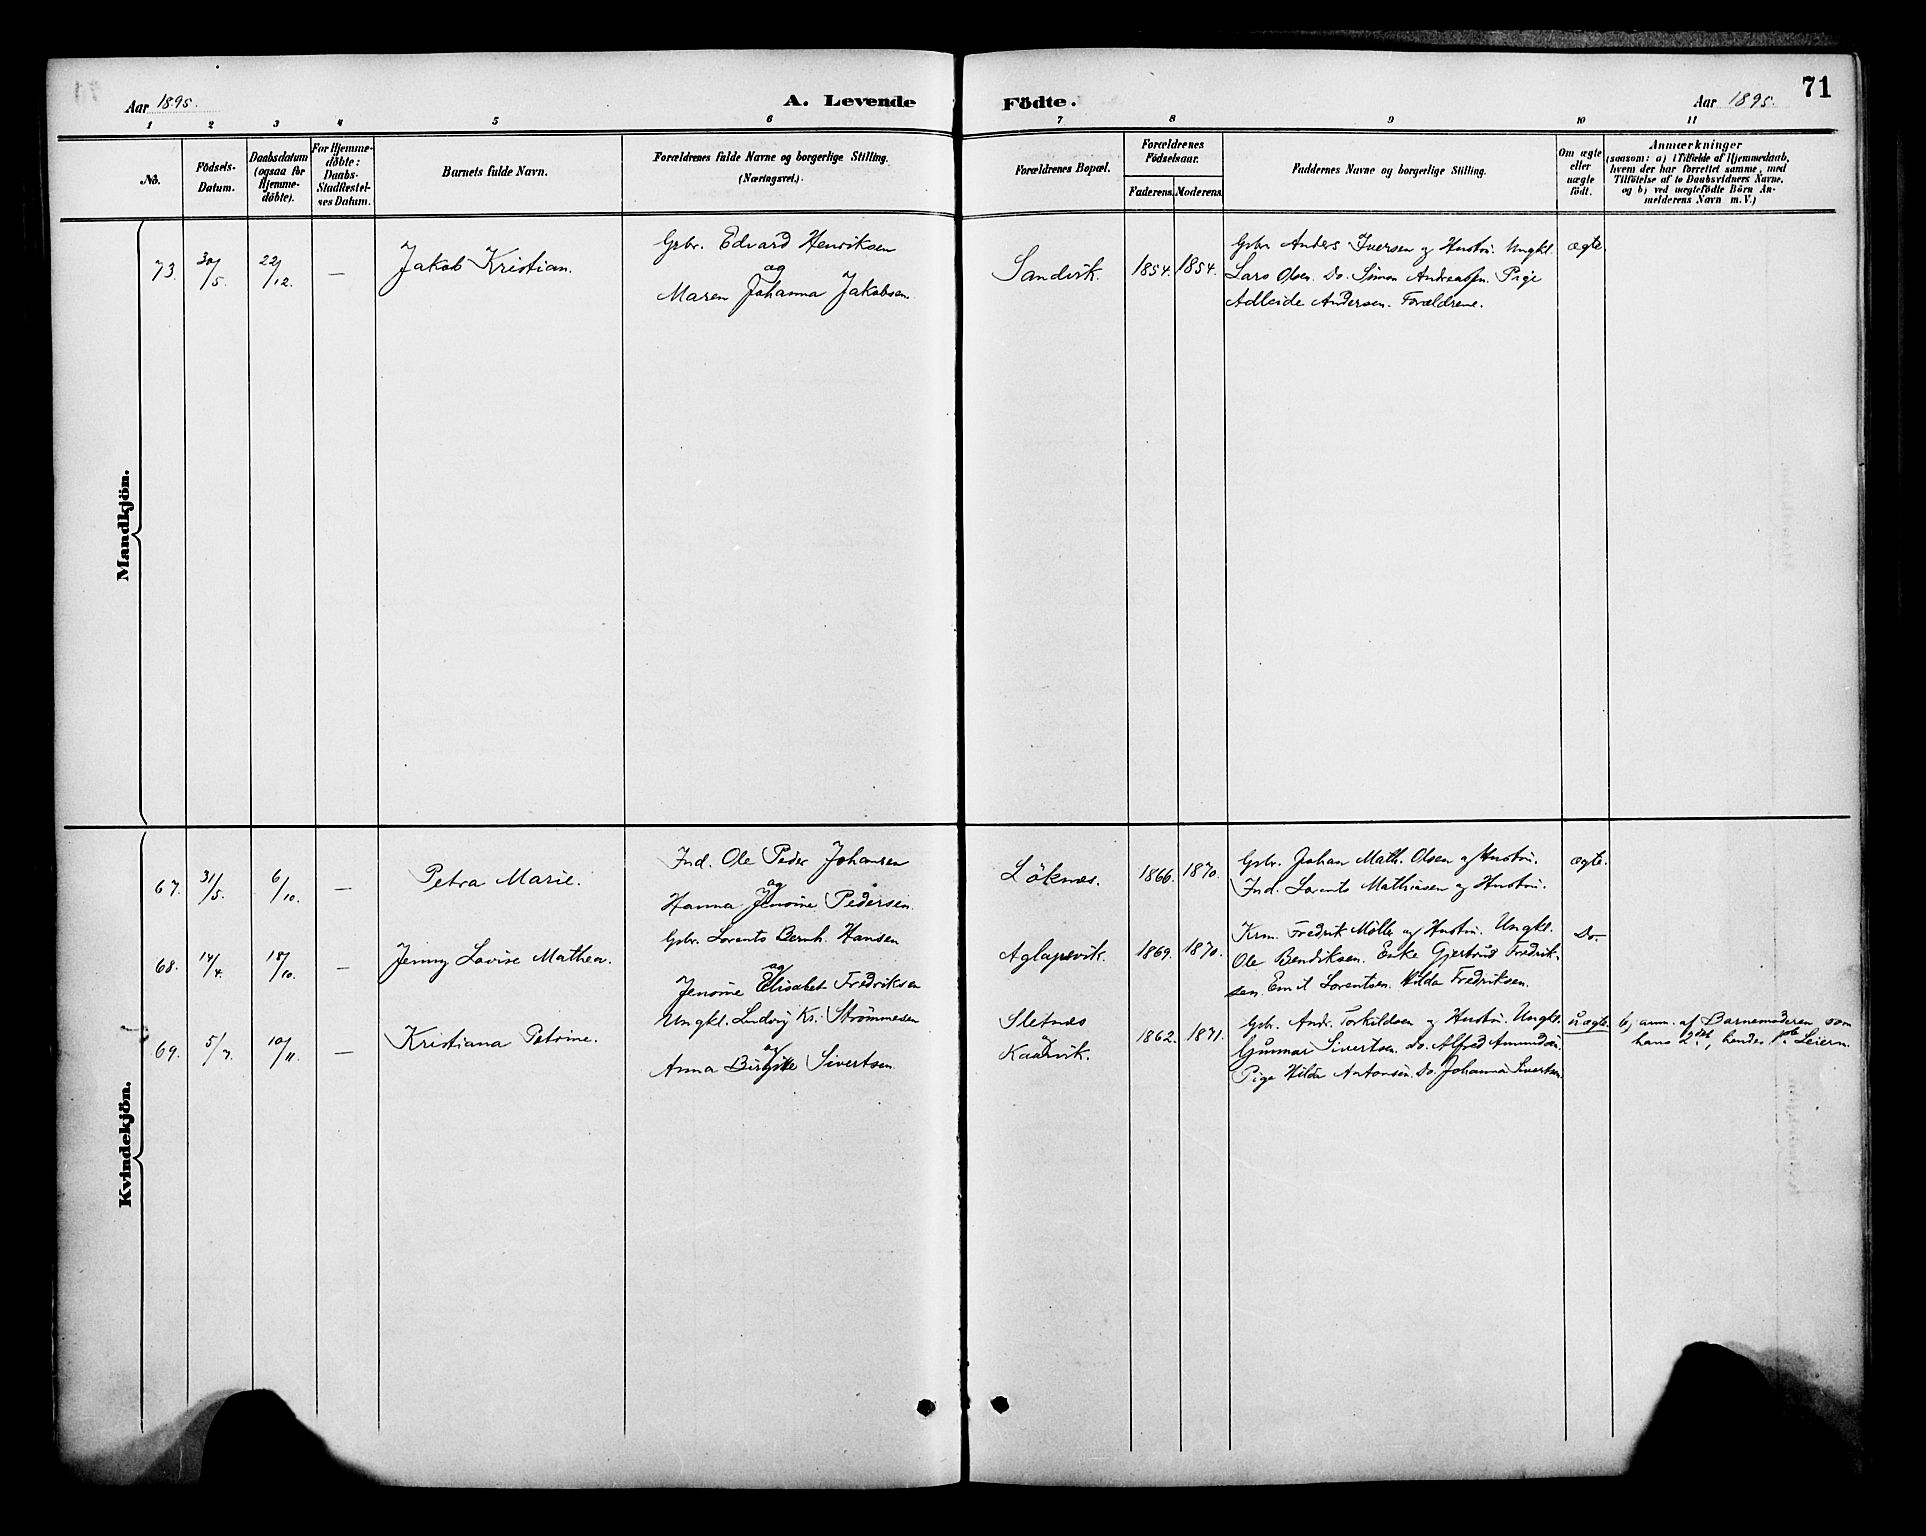 71
Aar 1895.
A. Levende Födte.
Aar 1895.
1 2 3 4 5 6 7 8 9 10 11
No.
Födsels-
Datum.
Daabsdatum
(ogsaa for
Hjemme-
døbte).
For Hjemme-
døbte:
Daabs-
Stadfæstel-
ses Datum.
Barnets fulde Navn.
Forældrenes fulde Navne og borgerlige Stilling.
(Næringsvei.)
Forældrenes Bopæl.
Forældrenes
Födselsaar.
Faderens. Moderens.
Faddernes Navne og borgerlige Stilling.
Om ægte
eller
uægte
født.
Anmærkninger
(saasom: a) i Tilfælde af Hjemmedaab,
hvem der har forrettet samme, med
Tilföielse af to Daabsvidners Navne,
og b) ved uægtefödte Börn An-
melderens Navn m. V.)
Mandkjön.
73. 30/5. 22/12. — Jakob Kristian.
Gbr. Edvard Henriksen
og
Maren Johanna Jakobsen
Sandvik. 1854. 1854.
Gbr. Anders Iversen og Hustru. Ungkl.
Lars Olsen. Do. Simon Andreassen. Pige
Adleide Andersen. Forældrene.
ægte
Kvindekjön.
67. 31/5. 6/10. — Petra Marie.
Ind. Ole Peder Johansen
og
Hanna Jensine Pedersen
Löknes. 1866. 1870.
Gbr. Johan Math. Olsen og Hustru.
Ind. Lorents Mathisen og Hustru.
ægte.
68. 14/4. 18/10. — Jenny Lovise Mathea.
Gbr. Lorents Bernh. Hansen
og
Jensine Elisabet Fredriksen
Aglapsvik. 1869. 1870.
Krm. Fredrik Møller og Hustru. Ungkl.
Ole Bendiksen. Enke Gjertrud Fredrik-
sen. Emil Lorentsen. Hilda Fredriksen.
Do.
69. 5/7. 10/11. — Kristiana Petrine.
Ungkl. Ludvig Kr. Strømmesen
og
Anna Birgitte Sivertsen
Sletnes
og
Kaarvik. 1862. 1871.
Gbr. Andr. Torkildsen og Hustru. Ungkl.
Gunnar Sivertsen. Do. Alfred Amundsen.
Pige Hilda Antonsen. Do. Johanna Sivertsen.
uægte.
b) anm. af Barnemoderen, som
hans 2det, hendes 1ste Leierm.